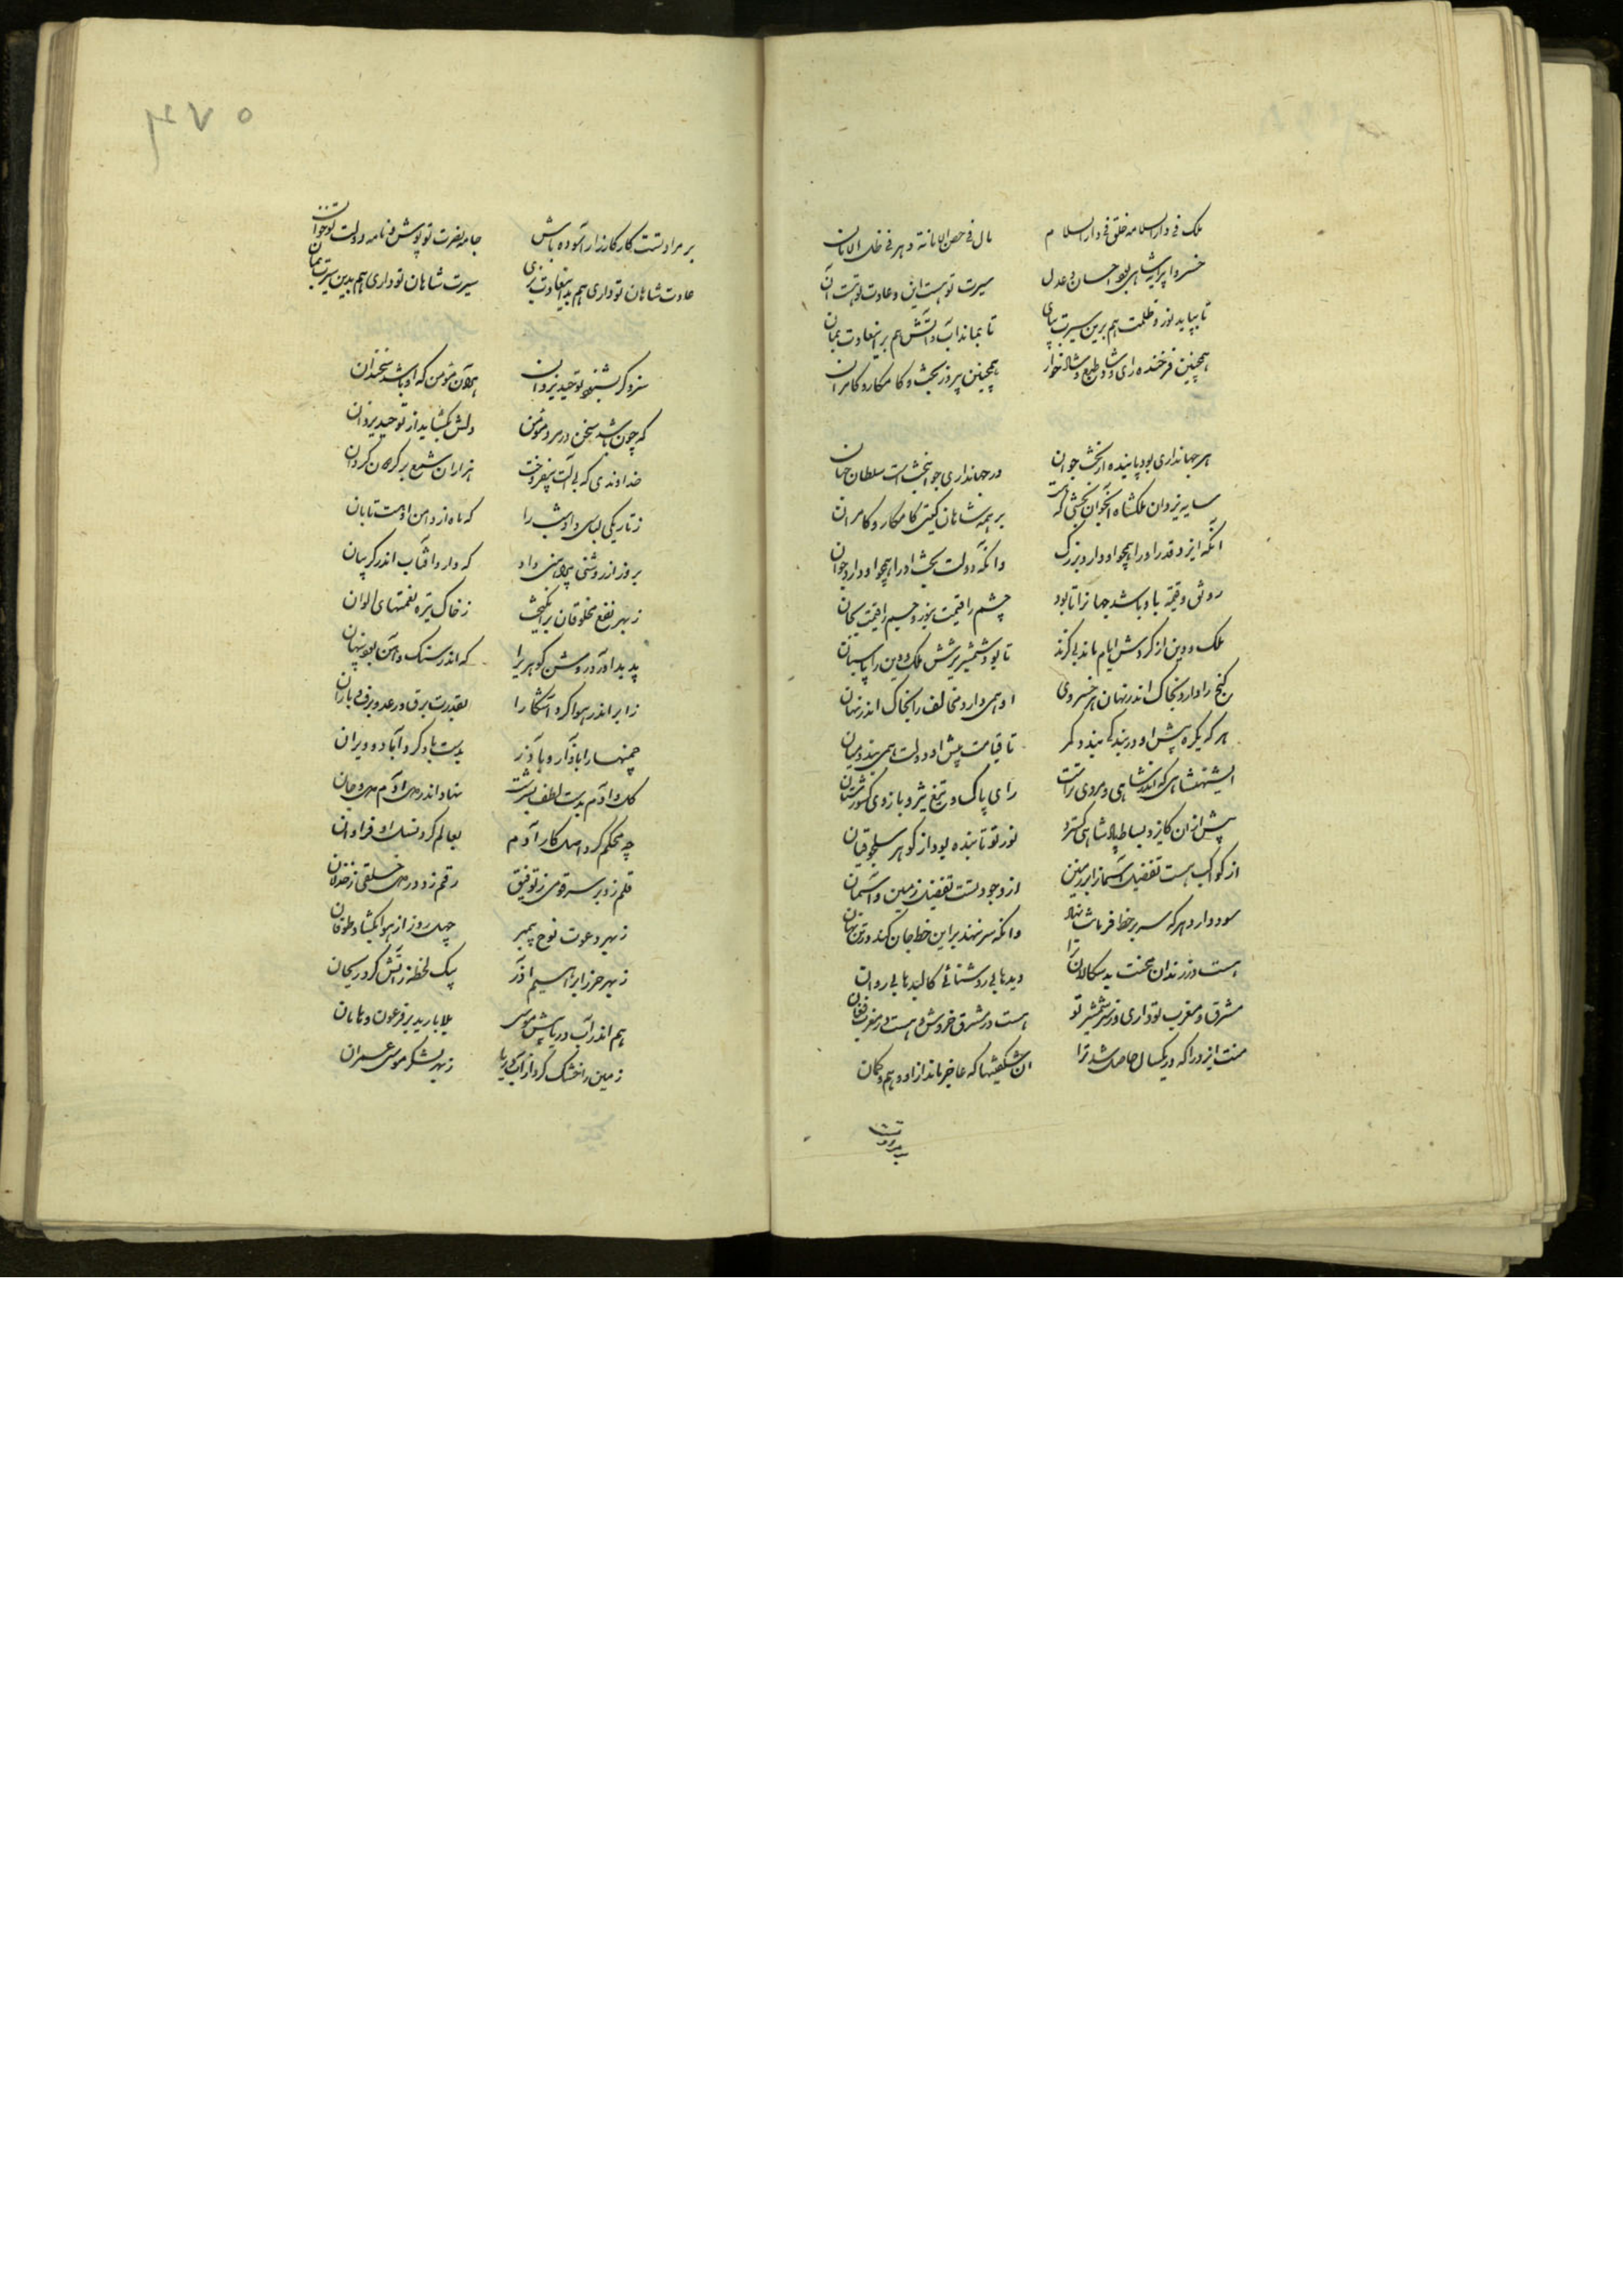 ملک فی دار السلامه خلق فی دار السلام مال فی حصن الامانة دهر فی ظل الامان
خسروا پیرایه شاهی بود احسان و عدل سیرت تو هست این و عادت تو هست آن
تا بپاید نور و ظلمت هم برین سیرت بپای تا بماند آب و آتش هم برین عادت بمان
همچنین فرخنده رای و شاد طبع و شادخوار همچنین پیروز بخت و کامکار و کامران
هر جهانداری بود پاینده از بخت جوان در جهانداری جوانبخت است سلطان جهان
سایه یزدان ملکشاه آنجوان بختی که هست بر همه شاهان گیتی کامکار و کامران
آنکه ایزد قدر او را همچو او دارد بزرگ وانکه دولت بخت او را همچو او دارد جوان
رونق و قیمت باو باشد جهانرا تا بود چشم را قیمت بنور و جسم را قیمت بجان
ملک و دین از گردش ایام ماند بی گزند تا بود شمشیر تیزش ملک و دین را پاسبان
گنج را دارد بخاک اندر نهان هر خسروی او همی دارد مخالف را بخاک اندر نهان
هر که یکره پیش او در بندگی بندد کمر تا قیامت پیش او دولت همی بندد میان
ای شهنشاهی که اندر شاهی و مردی تراست رای پاک و تیغ تیز و بازوی کشورستان
پیش از آن کایزد بساط پادشاهی گسترد نور تو تابنده بود از گوهر سلجوقیان
از کواکب هست تفضیل آسمانرا بر زمین از وجود تست تفضیل زمین و آسمان
سود دارد هر که سر بر خط فرمانت نهاد وانکه سر ننهد برین خط جان کند در تن نهان
هست در زندان محنت بد سگالان ترا دیدها بی روشنائی کالبدها بی روان
مشرق و مغرب تو داری وز سر شمشیر تو هست در مشرق خروش و هست در مغرب فغان
منت ایزد را که در یکسال حاصل شد ترا آن شگفتیها که عاجز ماند از او وهم و گمان
بر مراد تست کار کارزار آسوده باش جامه نصرت تو پوش و نامه دولت تو خوان
عادت شاهان تو داری هم بدین عادت بزی سیرت شاهان تو داری هم بدین سیرت بمان
سزد گر بشنود توحید یزدان هر آن مؤمن که او باشد سخندان
که چون باشد سخن در مرد مؤمن دلش بگشاید از توحید یزدان
خداوندی که بی آلت بیفروخت هزاران شمع بر گردون گردان
ز تاریکی لباسی داد شب را که ماه از دامن او هست تابان
بروز از روشنی پیراهنی داد که دارد آفتاب اندر گریبان
ز بهر نفع مخلوقان برانگیخت ز خاک تیره نعمتهای الوان
پدید آورد روشن گوهریرا که اندر سنگ و آهن بود پنهان
ز ابر اندر هوا کرد آشکارا بقدرت برق و رعد و برف و باران
چمنهارا بآذار و بآذر بدست باد کرد آباد و ویران
گل آدم بدست لطف بسرشت نهاد اندر دل آدم دل و جان
چو محکم کرد اصل کار آدم بعالم کرد نسل او فراوان
قلم زد بر سر قومی ز توفیق رقم زد در دل خلقی ز خذلان
ز بهر دعوت نوح پیمبر چهل روز از هوا بگشاد طوفان
ز بهر حرز ابراهیم آذر بیک لحظه ز آتش کرد ریحان
هم اندر آب دریا پیش موسی بلا بارید بر فرعون و هامان
زمین را خشک کرد از آب دریا ز بهر لشکر موسی عمران